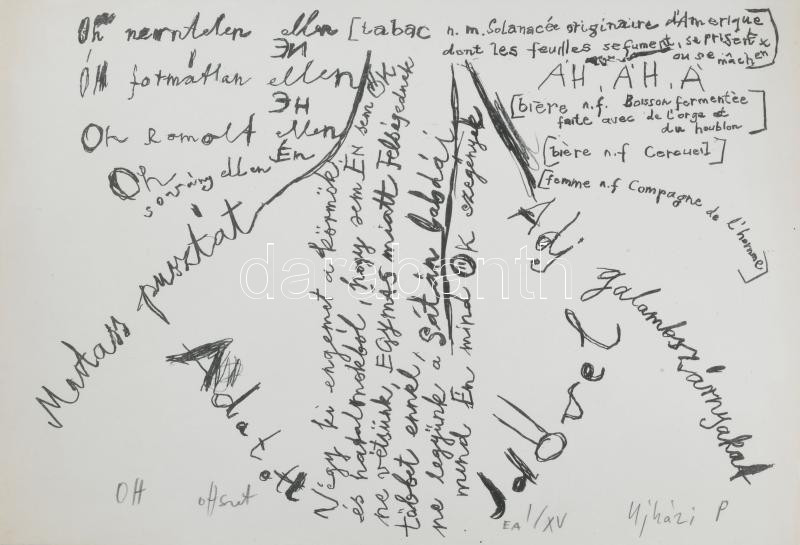 Oh nemtelen ellen
ЭИ
Óh formátlan ellen
ЭН
Oh Romolt ellen
Én
Oh
sovány ellen
[tabac n. m. Solanacée originaire d'Amerique
dont les feuilles se fument, se prisent
ou se mâchent]
ÁH, ÁH, À
[bière n.f. Boisson fermentée
faite avec de l'orge et
du houblon]
[bière n.f Cercueil]
[femme n.f Compagne de l'homme]
Mutass pusztát
Adatot
Végy ki engemet a körmök
és hatalmokból hogy sem ÉN sem ŐK
ne vétsünk, EGYmás miatt Felségednek
többet ennél,
ne legyünk a Sátán labdái
mind Én mind OK szegények
Adj galambszárnyakat
Jöllővel
OH
offszet
EA 1/XV
Ujházi P
darabanth